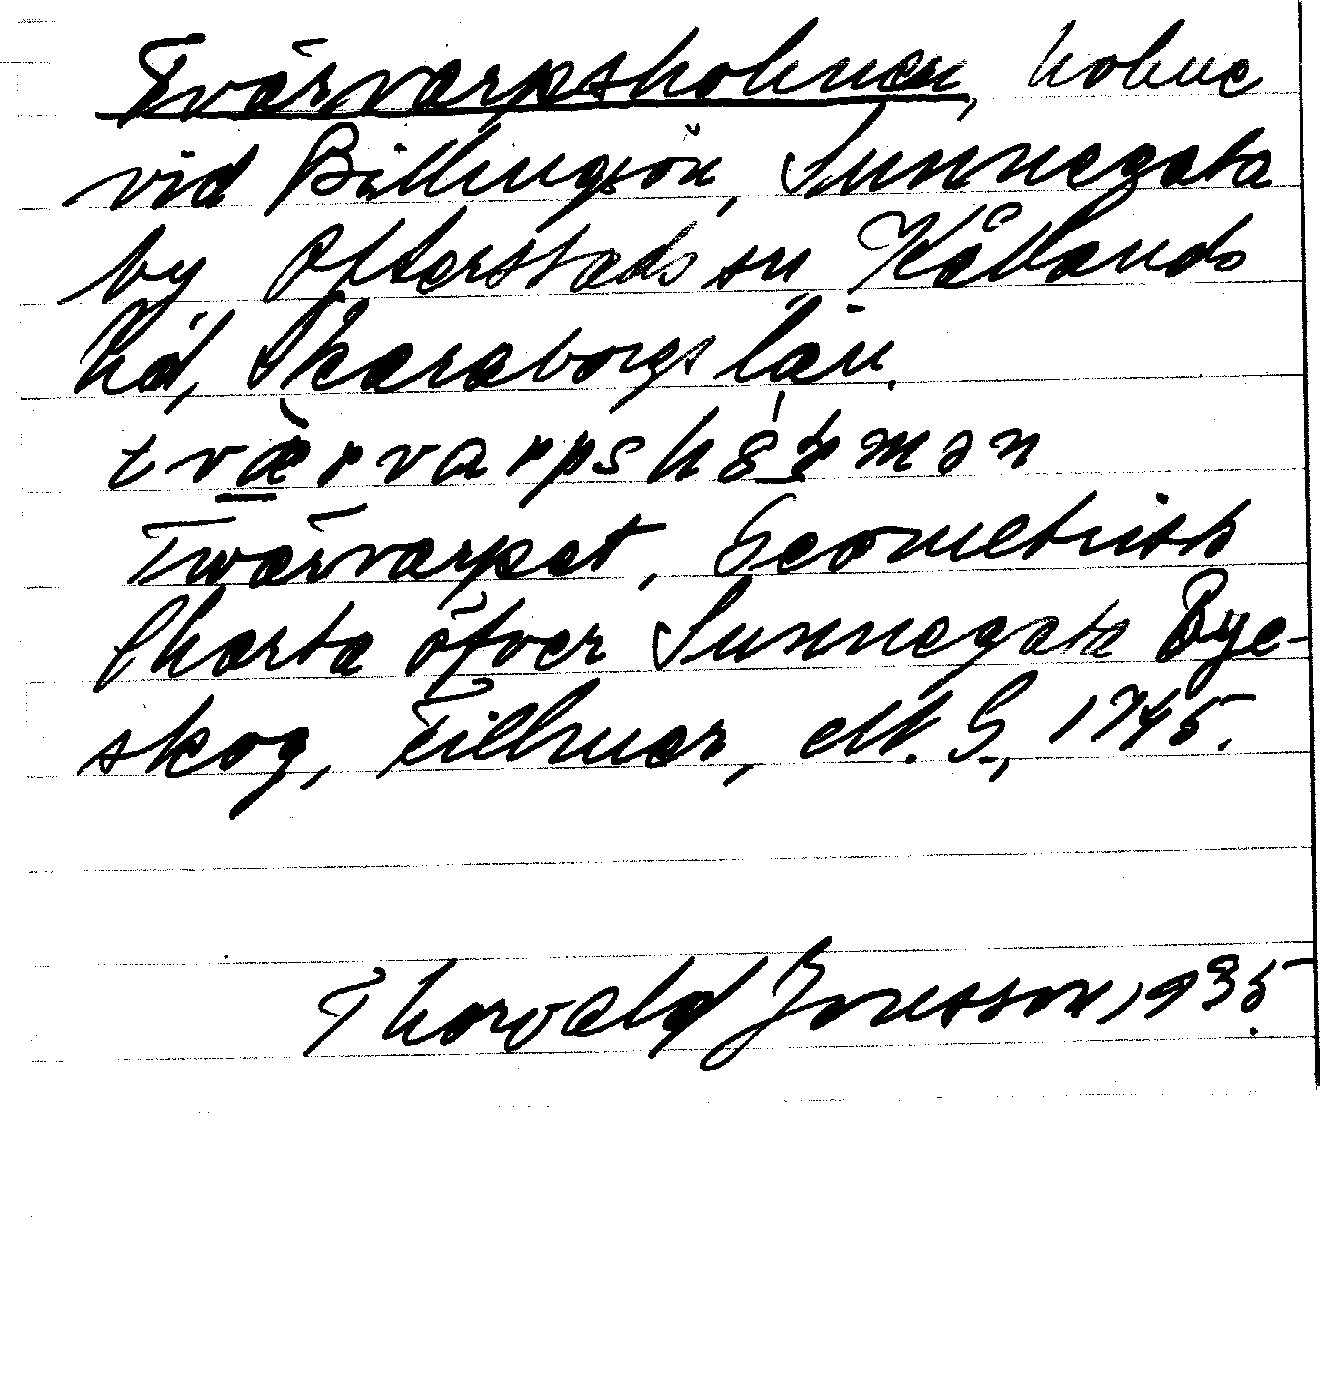 Tvärvarpsholmen, holme
vid Billingsön, Sunnegata
by Otterstads sn Kållands
hd, Skaraborgs län.
Twärvarpet, Geometrisk
Charta öfver Sunnegata Bye-
skog, Fillmer, M. G., 1745.
Thorvald Jonsson, 1935.